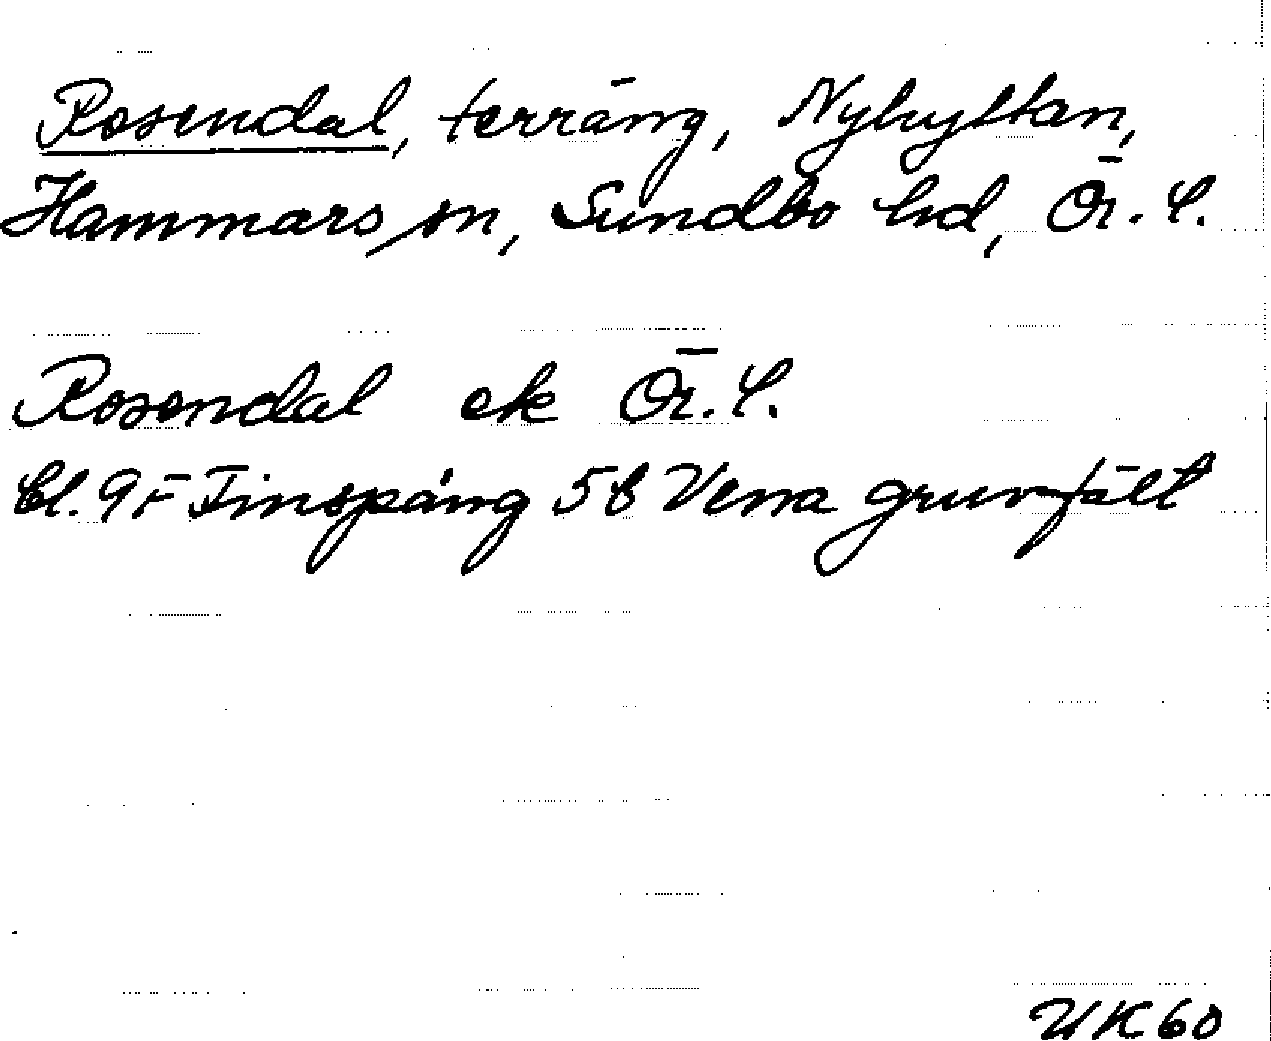 Rosendal, terräng, Nyhyttan,
Hammars sn, Sundbo hd, Ör. l.
Rosendal ek Ör. l.
bl. 9F Finspång 5b Vena gruvfält
UK60